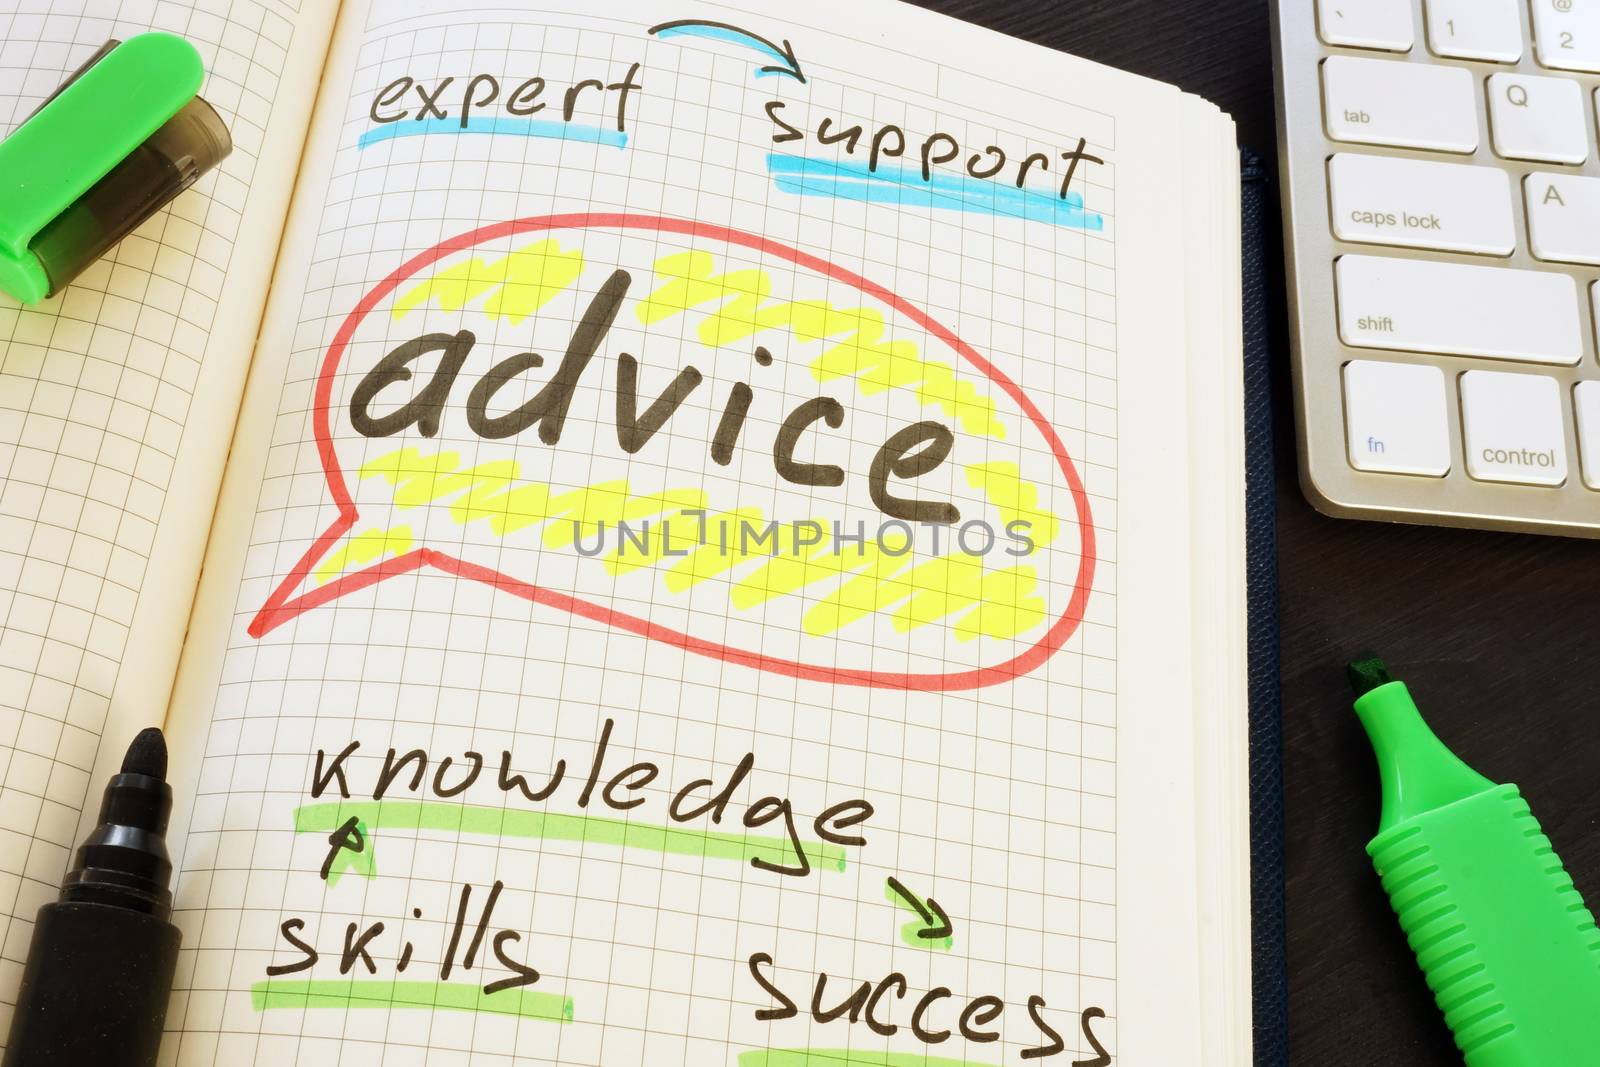 expert
support
advice
UNLIMPHOTOS
knowledge
skills
success
`
1
@
2
tab
Q
caps lock
A
shift
fn
control